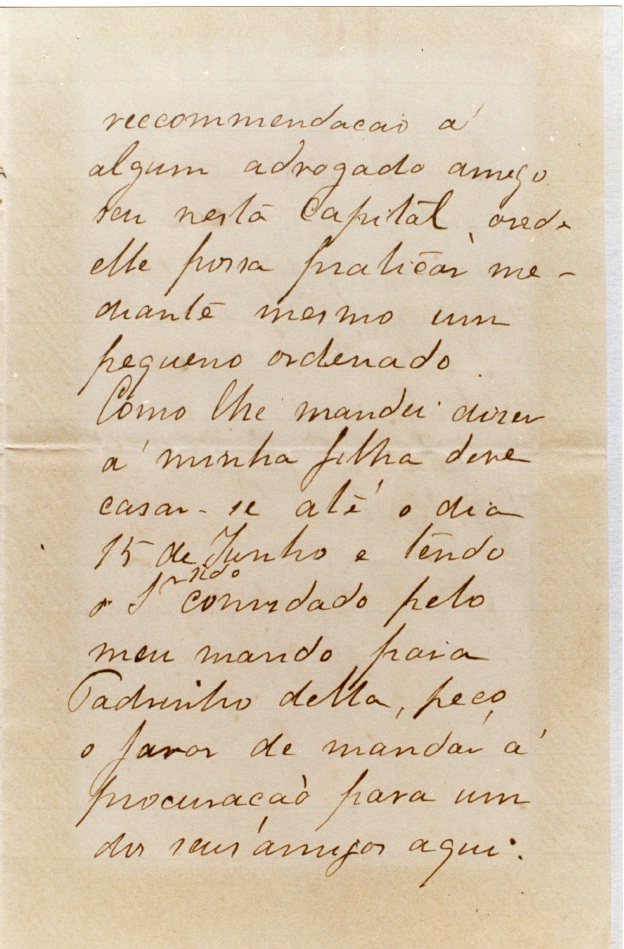 reccommendacaõ a'
algum advogado amigo
seu nesta Capital, onde
elle possa praticar me-
diante mesmo um
pequeno ordenado.
Como lhe mandei dizer
a' minha filha deve
casar-se até o dia
15 de Junho e tendo
sido
o Sr convidado pelo
meu marido para
Padrinho della, peço
o favor de mandar a'
procuracaò para um
dos seus amigos aqui.